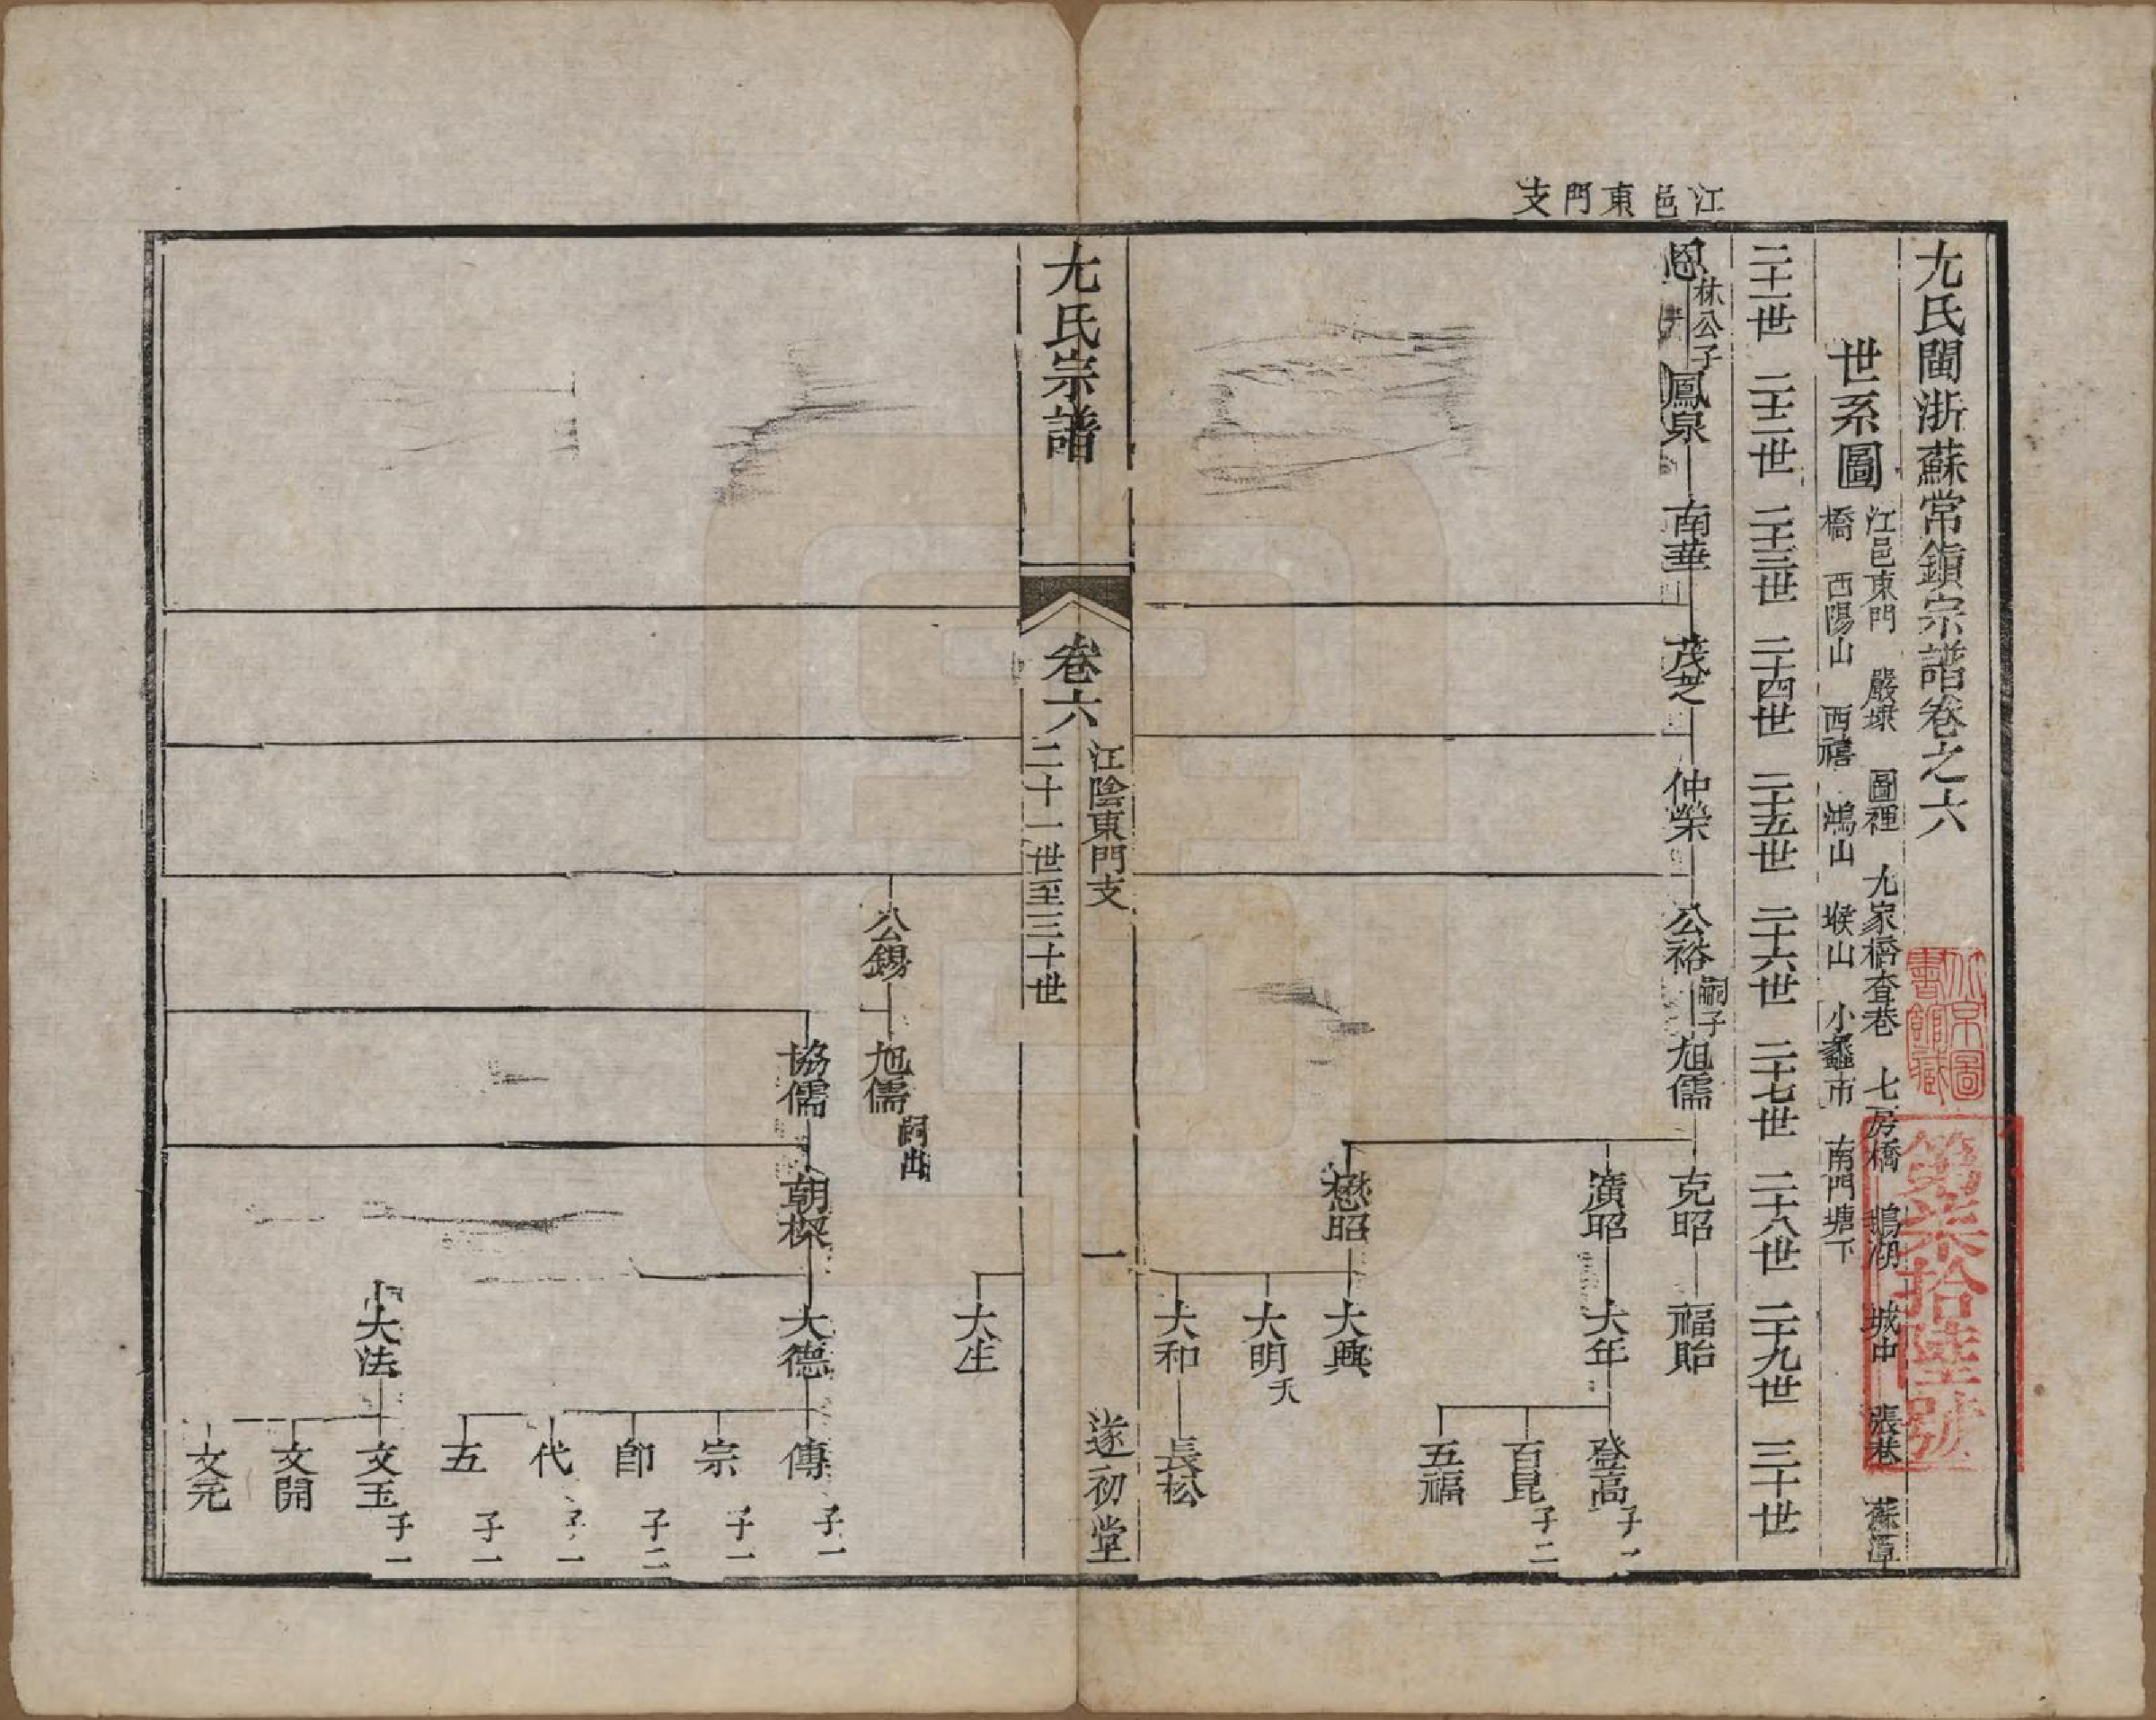 江邑東門支
尤氏閩浙蘇常鎮宗譜卷之六
世系圖
江邑東門 嚴埭 圖裡 尤家橋查巷 七房橋 鵝湖 城中 張巷 蘇潭
橋 西陽山 西禧 鴻山 堠山 小蠡市 南門塘下
二十一世 二十二世 二十三世 二十四世 二十五世 二十六世 二十七世 二十八世 二十九世 三十世
恩 林公子 鳳泉 南華 茂芝 仲榮 公裕 嗣子 旭儒 克昭 福貽
濱昭 大年 登高 子一
百昆 子二
五福
懋昭 大興
大明 夭
大和 長松
尤氏宗譜 卷六 江陰東門支 二十一世至三十世 一 遂初堂
大生
公錫 旭儒 嗣出
協儒 朝樑 大德 傳 子一
宗 子一
郎 子二
代 子一
五 子一
大法 文玉 子一
文開
文元
北京圖書館藏
第柒拾陸號